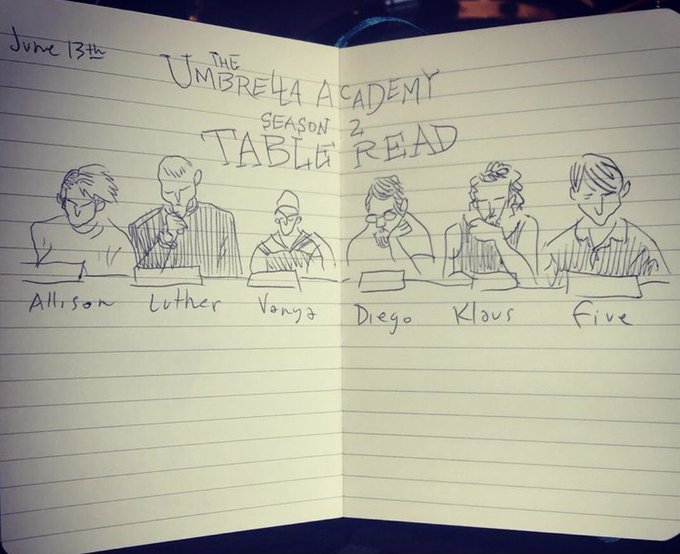 June 13th
THE
UMBRELLA ACADEMY
SEASON 2
TABLE READ
Allison Luther Vanya Diego Klaus Five